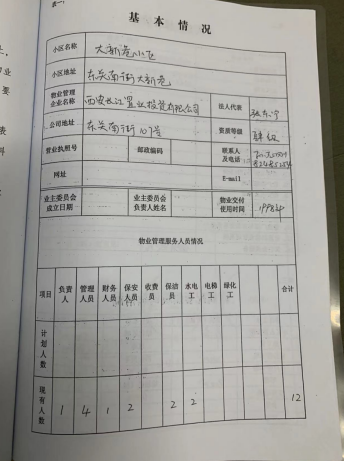 表一:
基本情况
小区名称 大新巷小区
小区地址 东关南街大新巷
物业管理企业名称 西安长江置业投资有限公司 法人代表
公司地址 东关南街107号 资质等级 肆级
营业执照号 邮政编码 联系人及电话
网址 E-mail
业主委员会成立日期 业主委员会负责人姓名 物业交付使用时间 1998年
物业管理服务人员情况
项目 负责人 管理人员 财务人员 保安人员 收费员 保洁员 水电工 电梯工 绿化工 合计
计划人数
现有人数 1 4 1 2 2 2 12